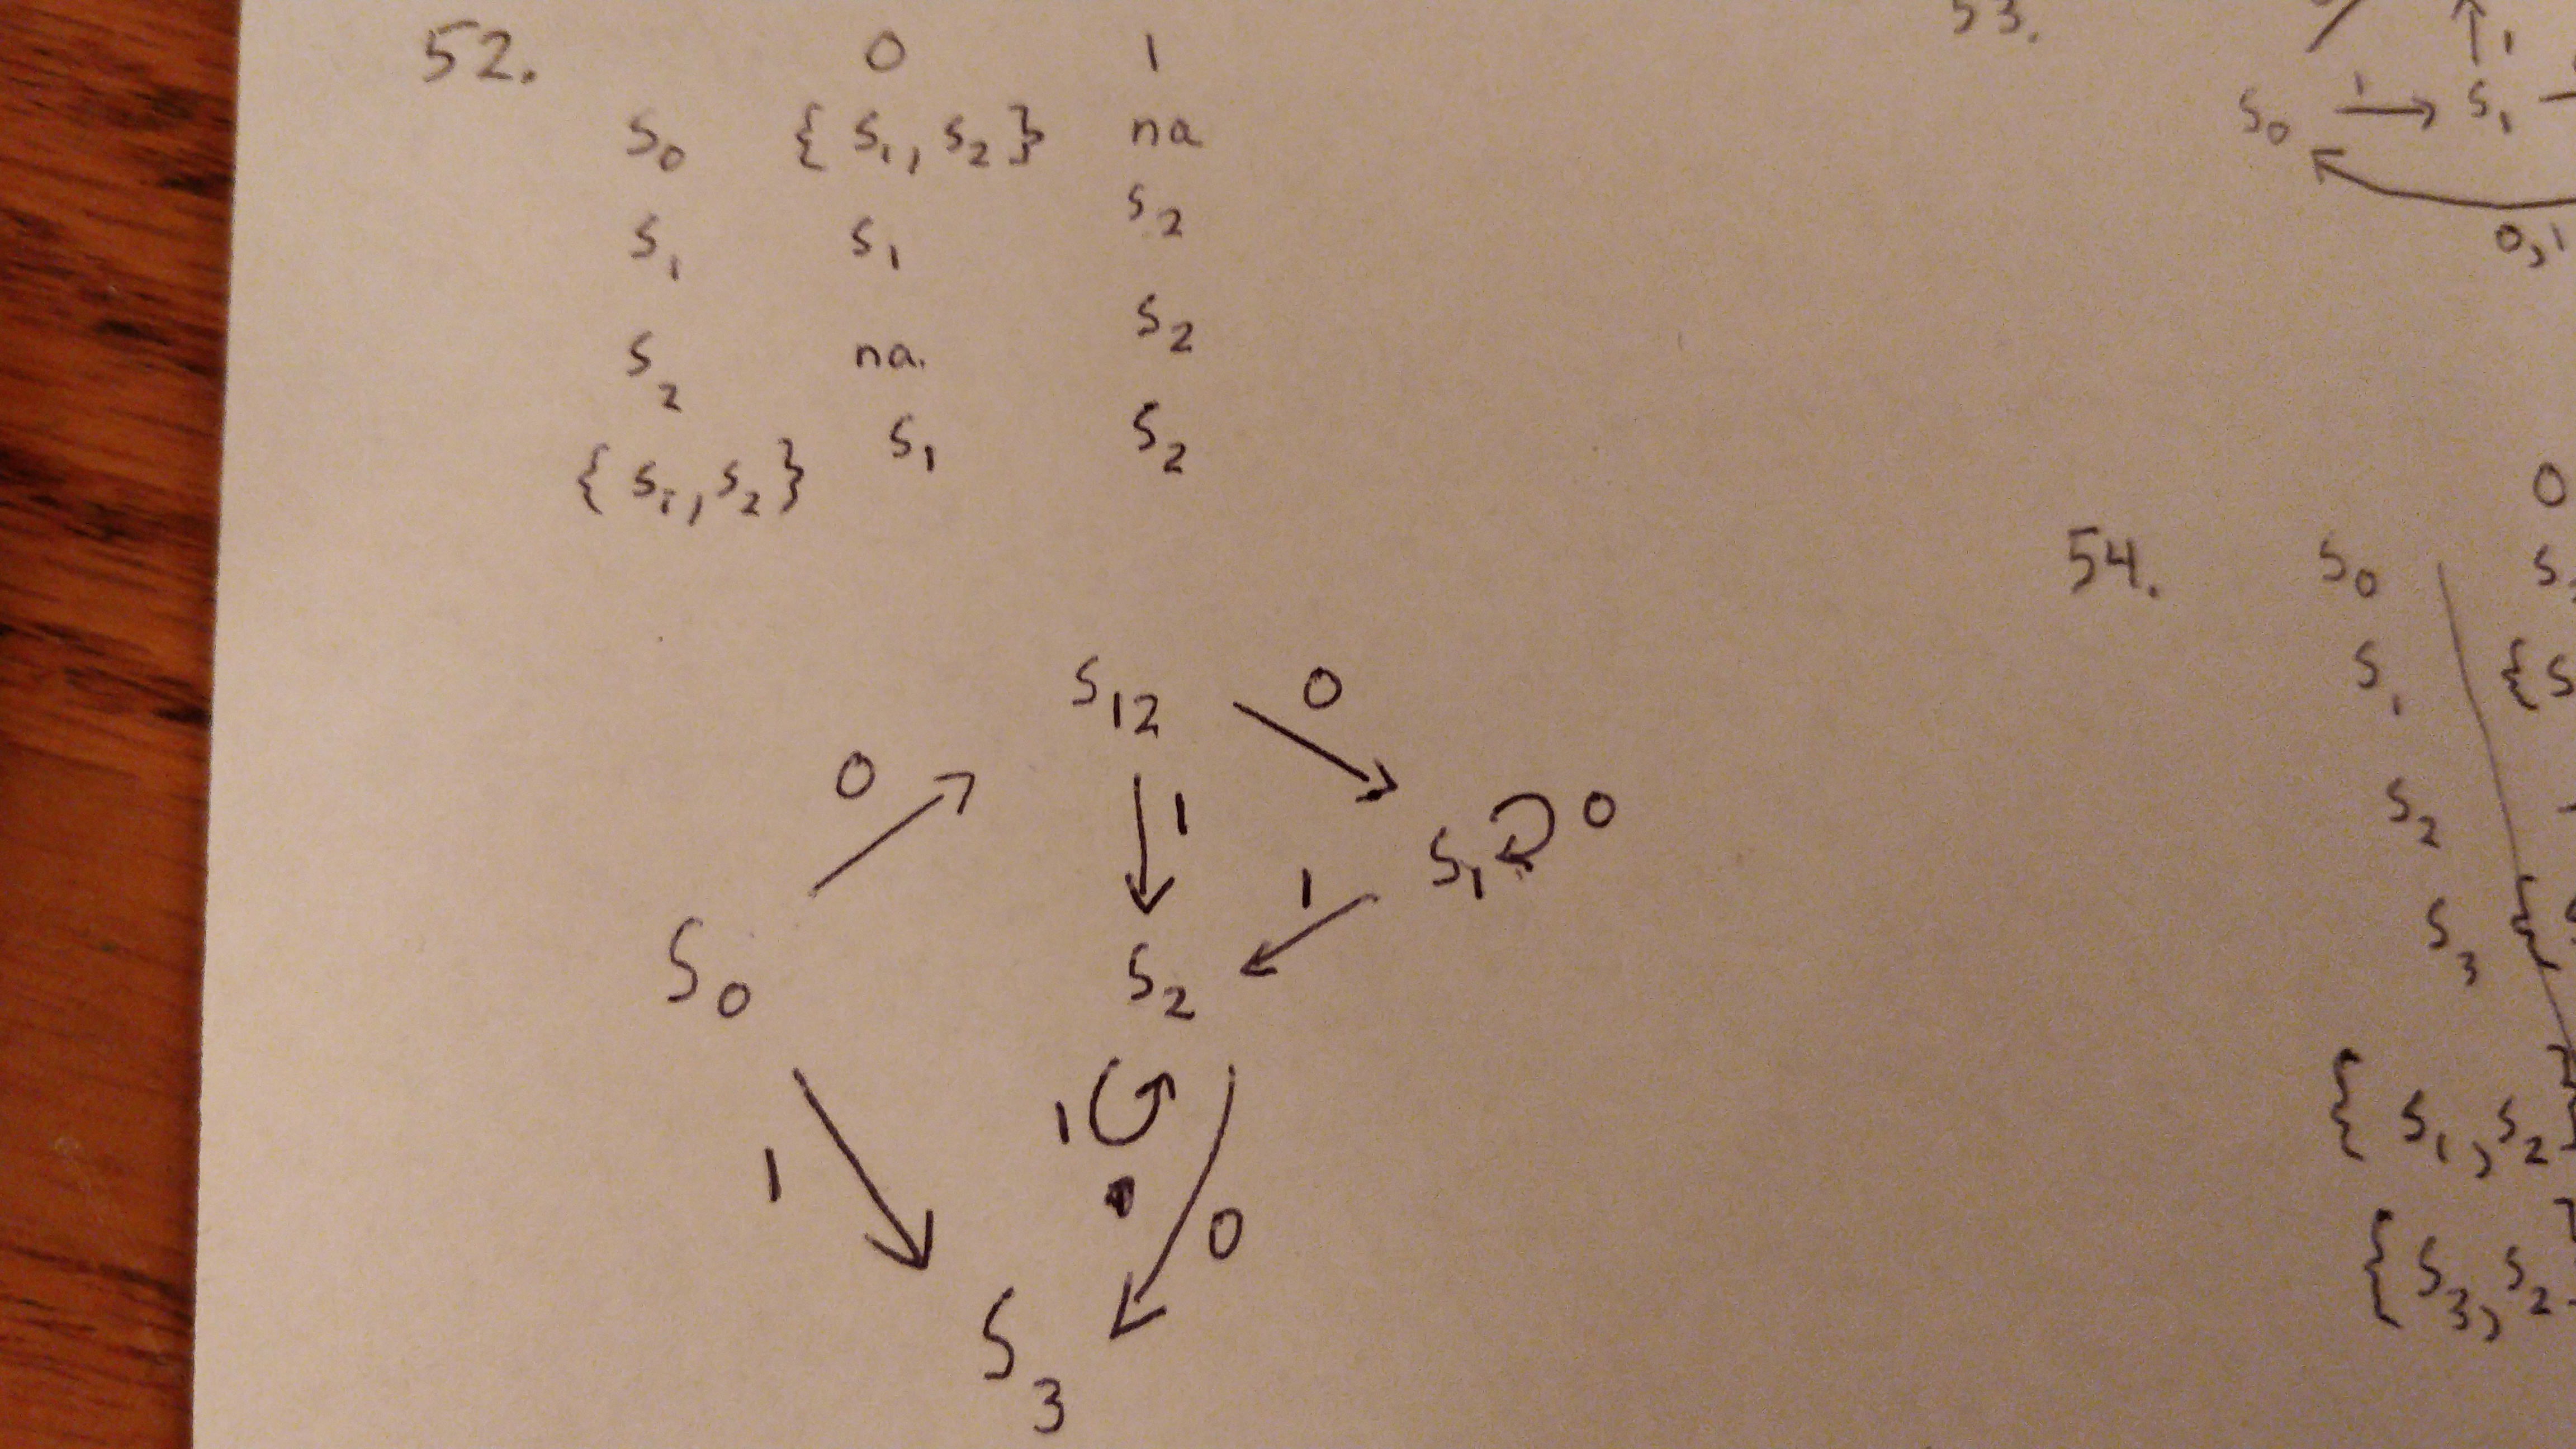 52. 0 1
S₀ { S₁, S₂ } na
S₁ S₁ S₂
S₂ na. S₂
{ S₁, S₂ } S₁ S₂
S₁₂ 0
0 1 S₁ 0
1
S₀ S₂
1
1 0
S₃
53. 1
S₀ 1 S₁
0,1
0
54. S₀
S₁
S₂
S₃
{ S₁, S₂ }
{ S₃, S₂